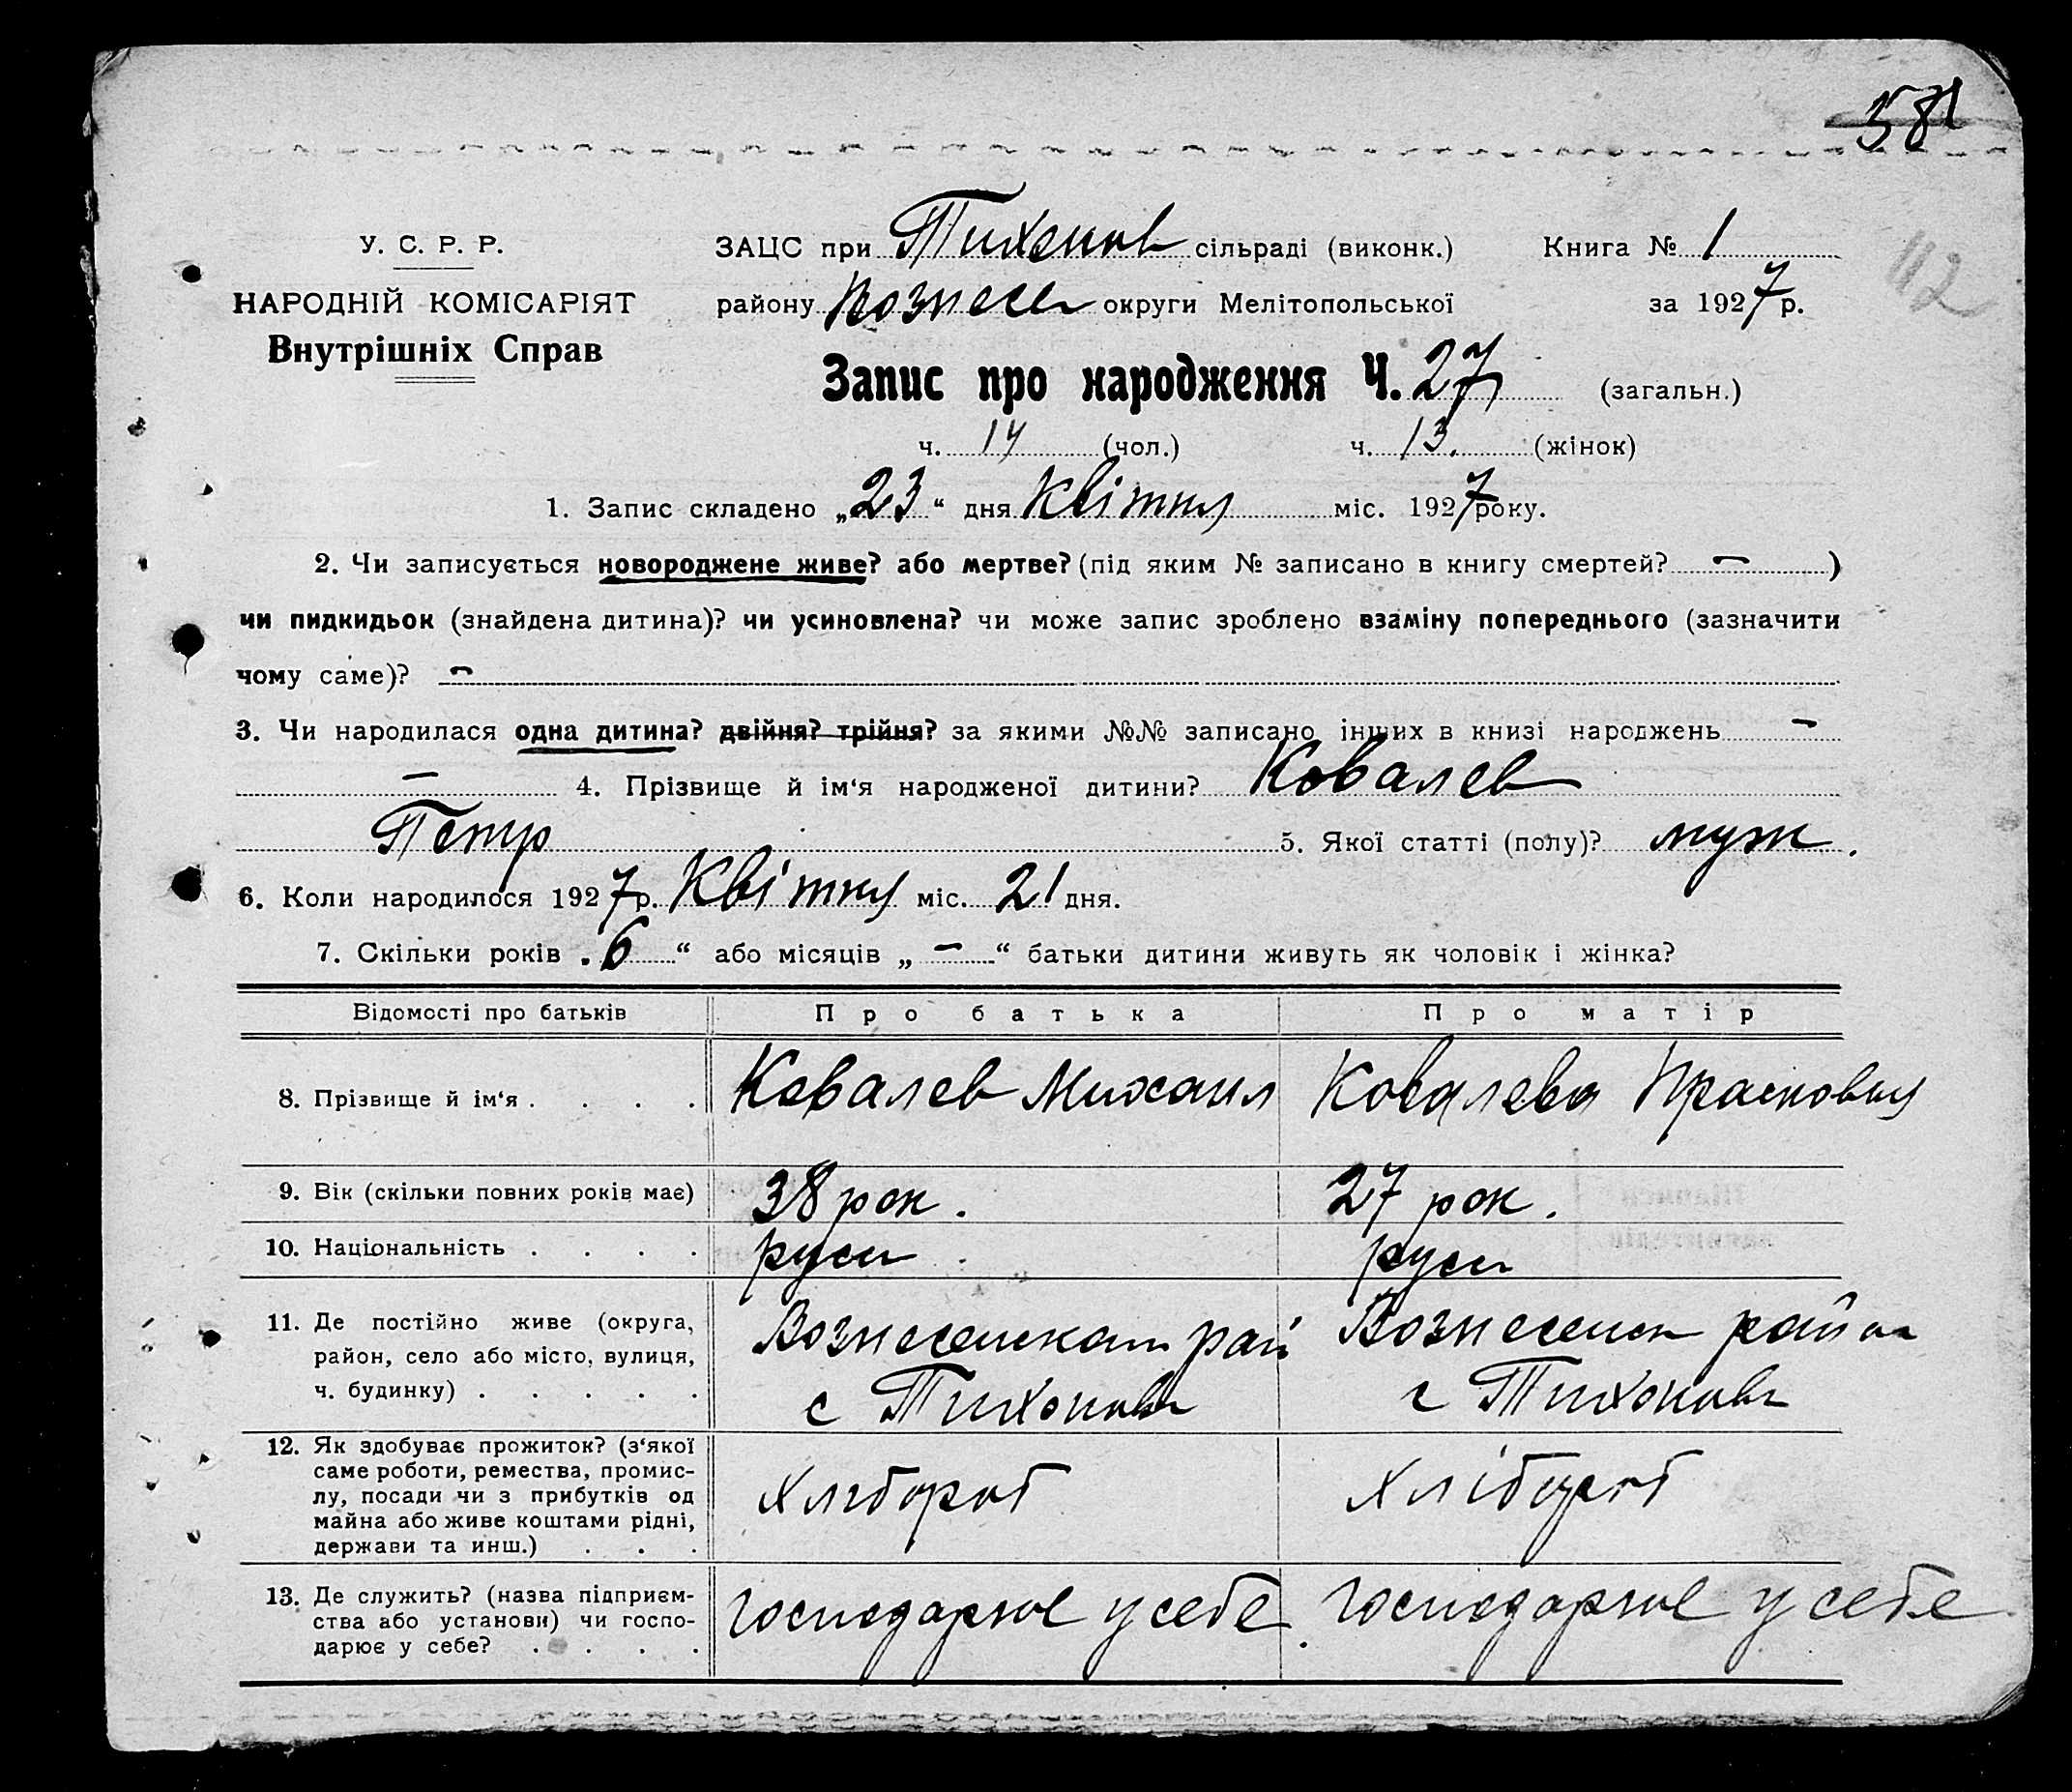 581
112
У. С. Р. Р.
ЗАЦС при Тихонов сільраді (виконк.) Книга № 1
НАРОДНІЙ КОМІСАРІЯТ
району Вознесен округи Мелітопольської за 1927 р.
Внутрішніх Справ
Запис про народження Ч. 27 (загальн.)
ч. 14 (чол.) ч. 13. (жінок)
1. Запис складено „23“ дня Квітня міс. 1927 року.
2. Чи записується новороджене живе? або мертве? (під яким № записано в книгу смертей? — )
чи пидкидьок (знайдена дитина)? чи усиновлена? чи може запис зроблено взаміну попереднього (зазначити
чому саме)? —
3. Чи народилася одна дитина? двійня? трійня? за якими №№ записано інших в книзі народжень —
— 4. Прізвище й ім‘я народженої дитини? Ковалев
Петр 5. Якої статті (полу)? муж.
6. Коли народилося 1927 р. Квітня міс. 21 дня.
7. Скільки років „6“ або місяців „—“ батьки дитини живуть як чоловік і жінка?
Відомості про батьків Про батька Про матір
8. Прізвище й ім‘я . . . . Ковалев Михаил Ковалева Прасковья
9. Вік (скільки повних років має) 38 рок. 27 рок.
10. Національність . . . . руси руси
11. Де постійно живе (округа,
район, село або місто, вулиця,
ч. будинку) . . . . .
Вознесенскаи рай
с Тихонов
Вознесенск район
с Тихонов
12. Як здобуває прожиток? (з‘якої
саме роботи, ремества, промис-
лу, посади чи з прибутків од
майна або живе коштами рідні,
держави та инш.) . . .
Хлібороб Хлібороб
13. Де служить? (назва підприєм-
ства або установи) чи госпо-
дарює у себе? . . . .
господарює у себе. господарює у себе